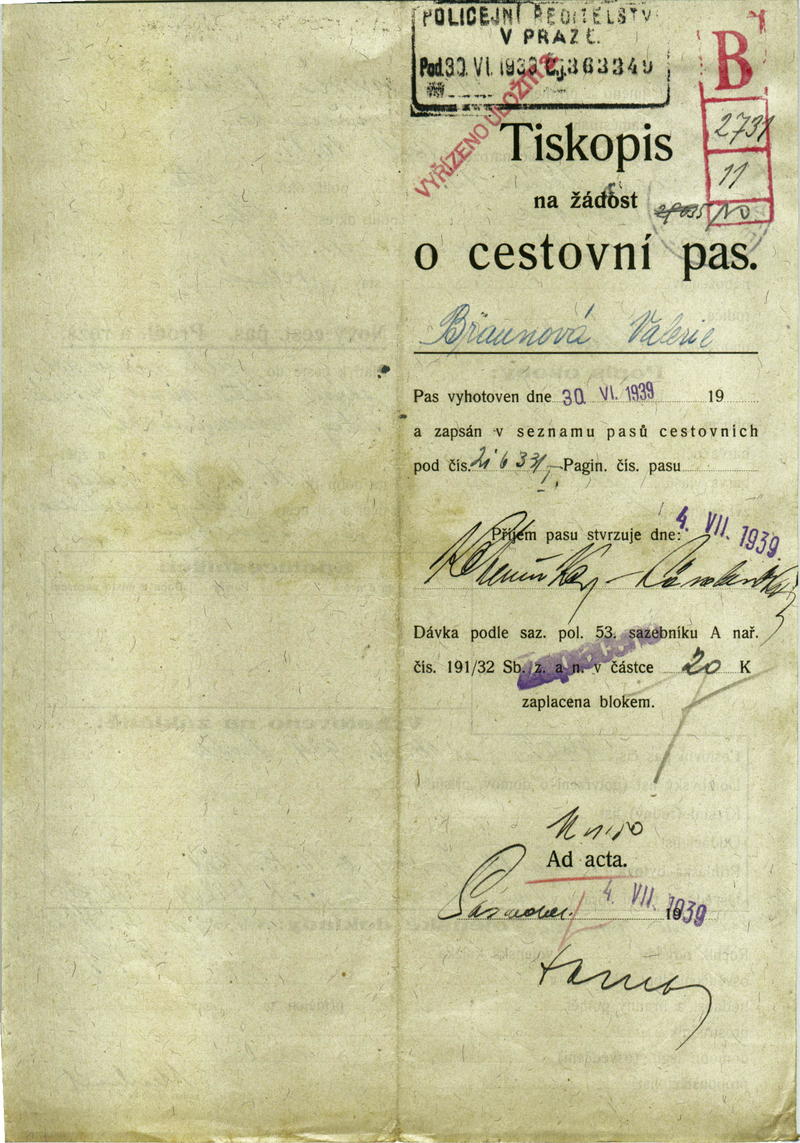 POLICEJNÍ ŘEDITELSTV
V PRAZE.
Pod 30. VI. 1939 Čj. 363349
VYŘÍZENO ULOŽIT
B
2731
11
No
Tiskopis
na žádost
o cestovní pas.
Braunová Valerie
Pas vyhotoven dne 30. VI. 1939 19
a zapsán v seznamu pasů cestovních
pod čís. Pagin. čís. pasu
Příjem pasu stvrzuje dne: 4. VII. 1939
Dávka podle saz. pol. 53. sazebníku A nař.
čís. 191/32 Sb. z. a n. v částce 20 K
Zaplaceno
zaplacena blokem.
Ad acta.
4. VII. 1939
19